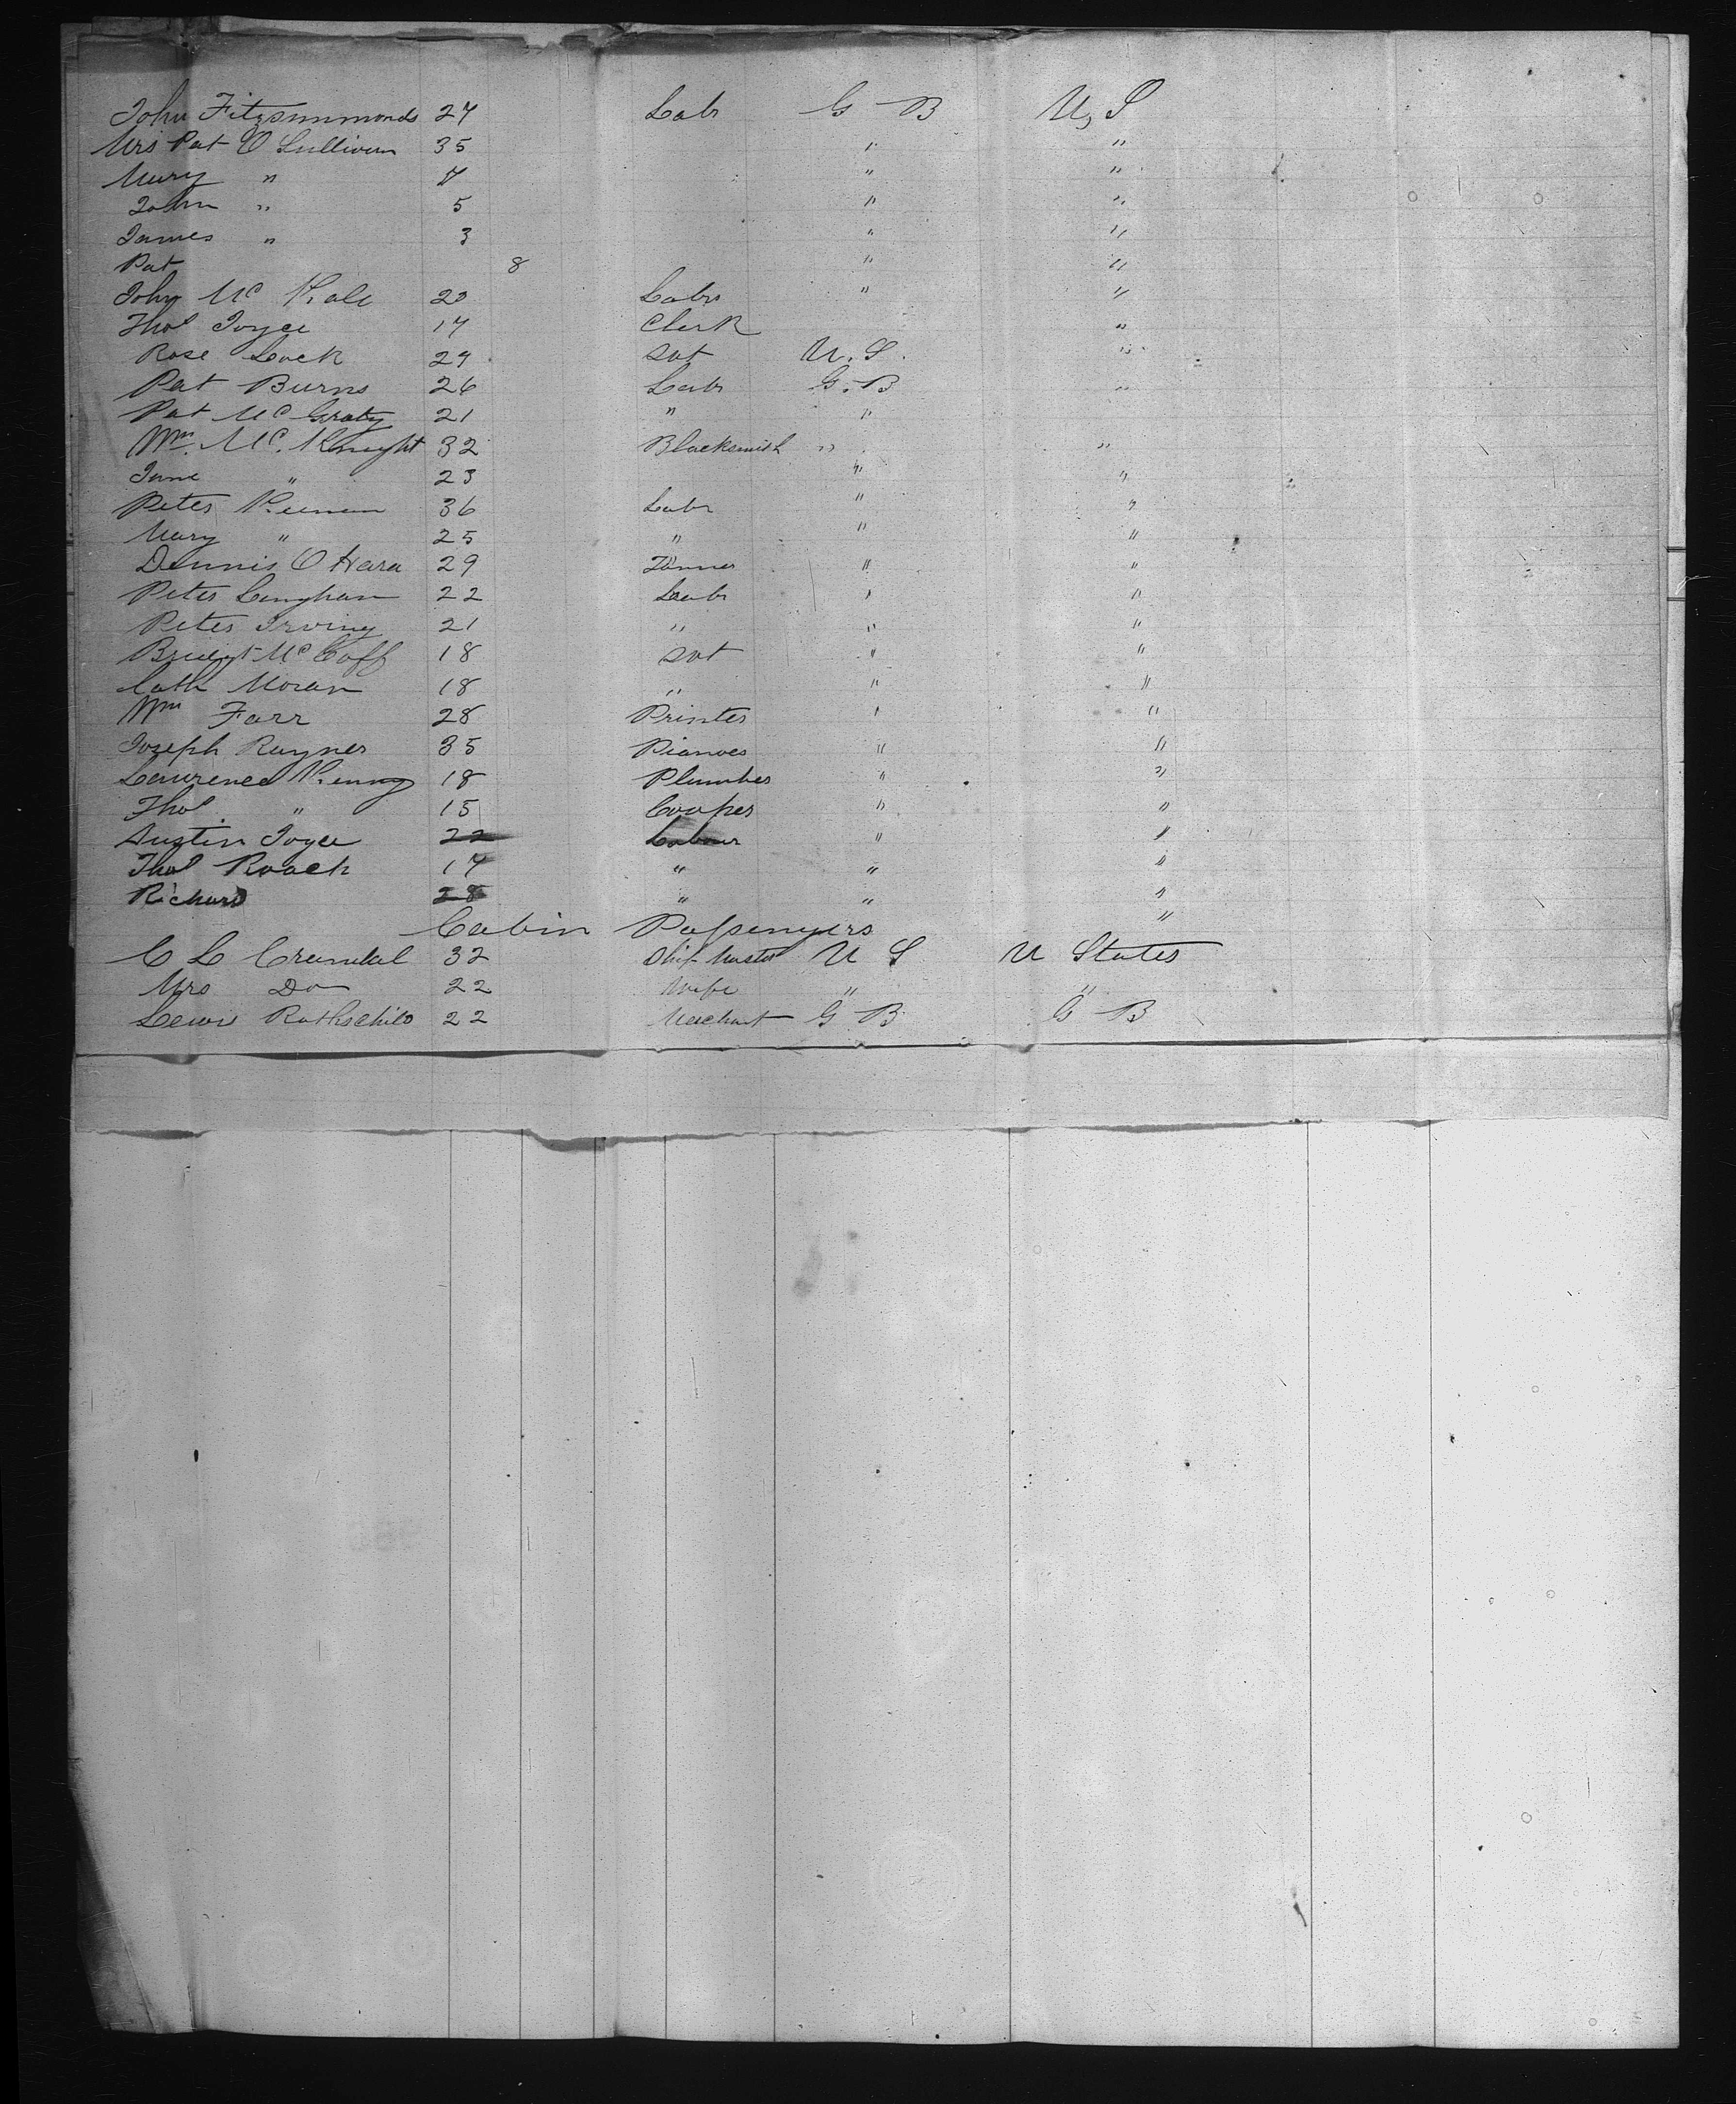 John Fitzsimmonds 27 Labr G B U, S
Mrs Pat O Sullivan 35 " "
Mary " 7 " "
John " 5 " "
James " 3 " "
Pat 8 " "
John Mc Hale 20 Labr " "
Thos Joyce 17 Clerk "
Rose Lock 29 Svt U. S. "
Pat Burns 26 Labr G. B "
Pat Mc Graty 21 " "
Wm. Mc. Knight 32 Blacksmith " "
Jane " 23 " "
Peter Keenan 36 Labr " "
Mary " 25 " " "
Dennis O Hara 29 Tanner " "
Peter Lenghan 22 Labr " "
Peter Irving 21 " " "
Bridgt Mc Goff 18 Svt " "
Cath Moran 18 " " "
Wm Farr 28 Printer " "
Joseph Rayner 35 Pianoes " "
Laurence Kenny 18 Plumber " "
Thos " 15 Cooper " "
Austin Joyce 22 Labour " "
Thos Roach 17 " " "
Richard 28 " " "
Cabin Passengers "
C L Crandal 32 Ship Master U S U States
Mrs Do 22 Wife " "
Lewis Rothschild 22 Merchant G B G B